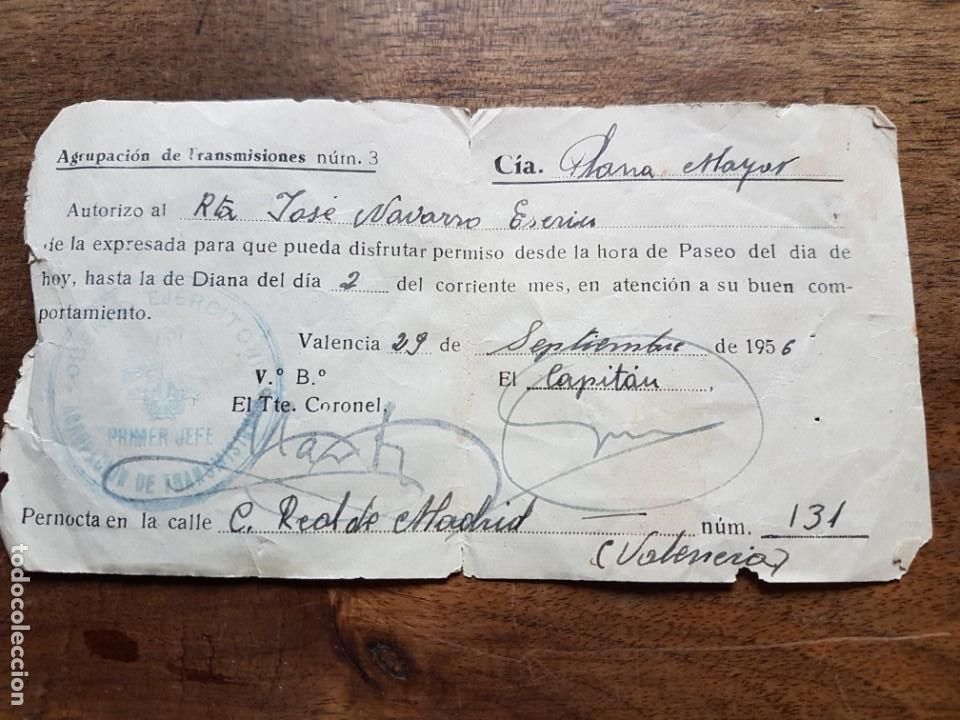 Agrupación de Transmisiones núm. 3
Cía. Plana Mayor
Autorizo al Rta José Navarro
de la expresada para que pueda disfrutar permiso desde la hora de Paseo del dia de
hoy, hasta la de Diana del día 2 del corriente mes, en atención a su buen com-
portamiento.
Valencia 29 de Septiembre de 1956
V.º B.º
El Capitán,
El Tte. Coronel,
EJERCITO
PRIMER JEFE
AGRUPACION DE TRANSMISIONES
Pernocta en la calle C. Real de Madrid núm. 131
(Valencia)
todocoleccion